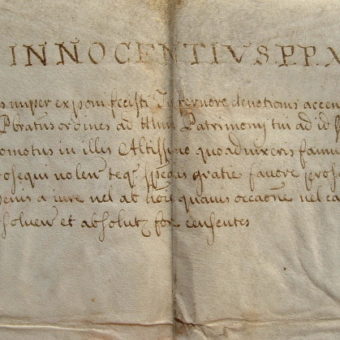 INNOCENTIVS P.P. X
nuper exponi fecisti Tu fervore devotionis accen
Pbratus ordines ad titulu Patrimonij tui ad id s
omotus in illis Altissimo quoad vixeris famu
osequi volen teq. specialis gratie favore prose
a iure vel ab hoie quavis occaone vel ca
solven et absolut fore censentes